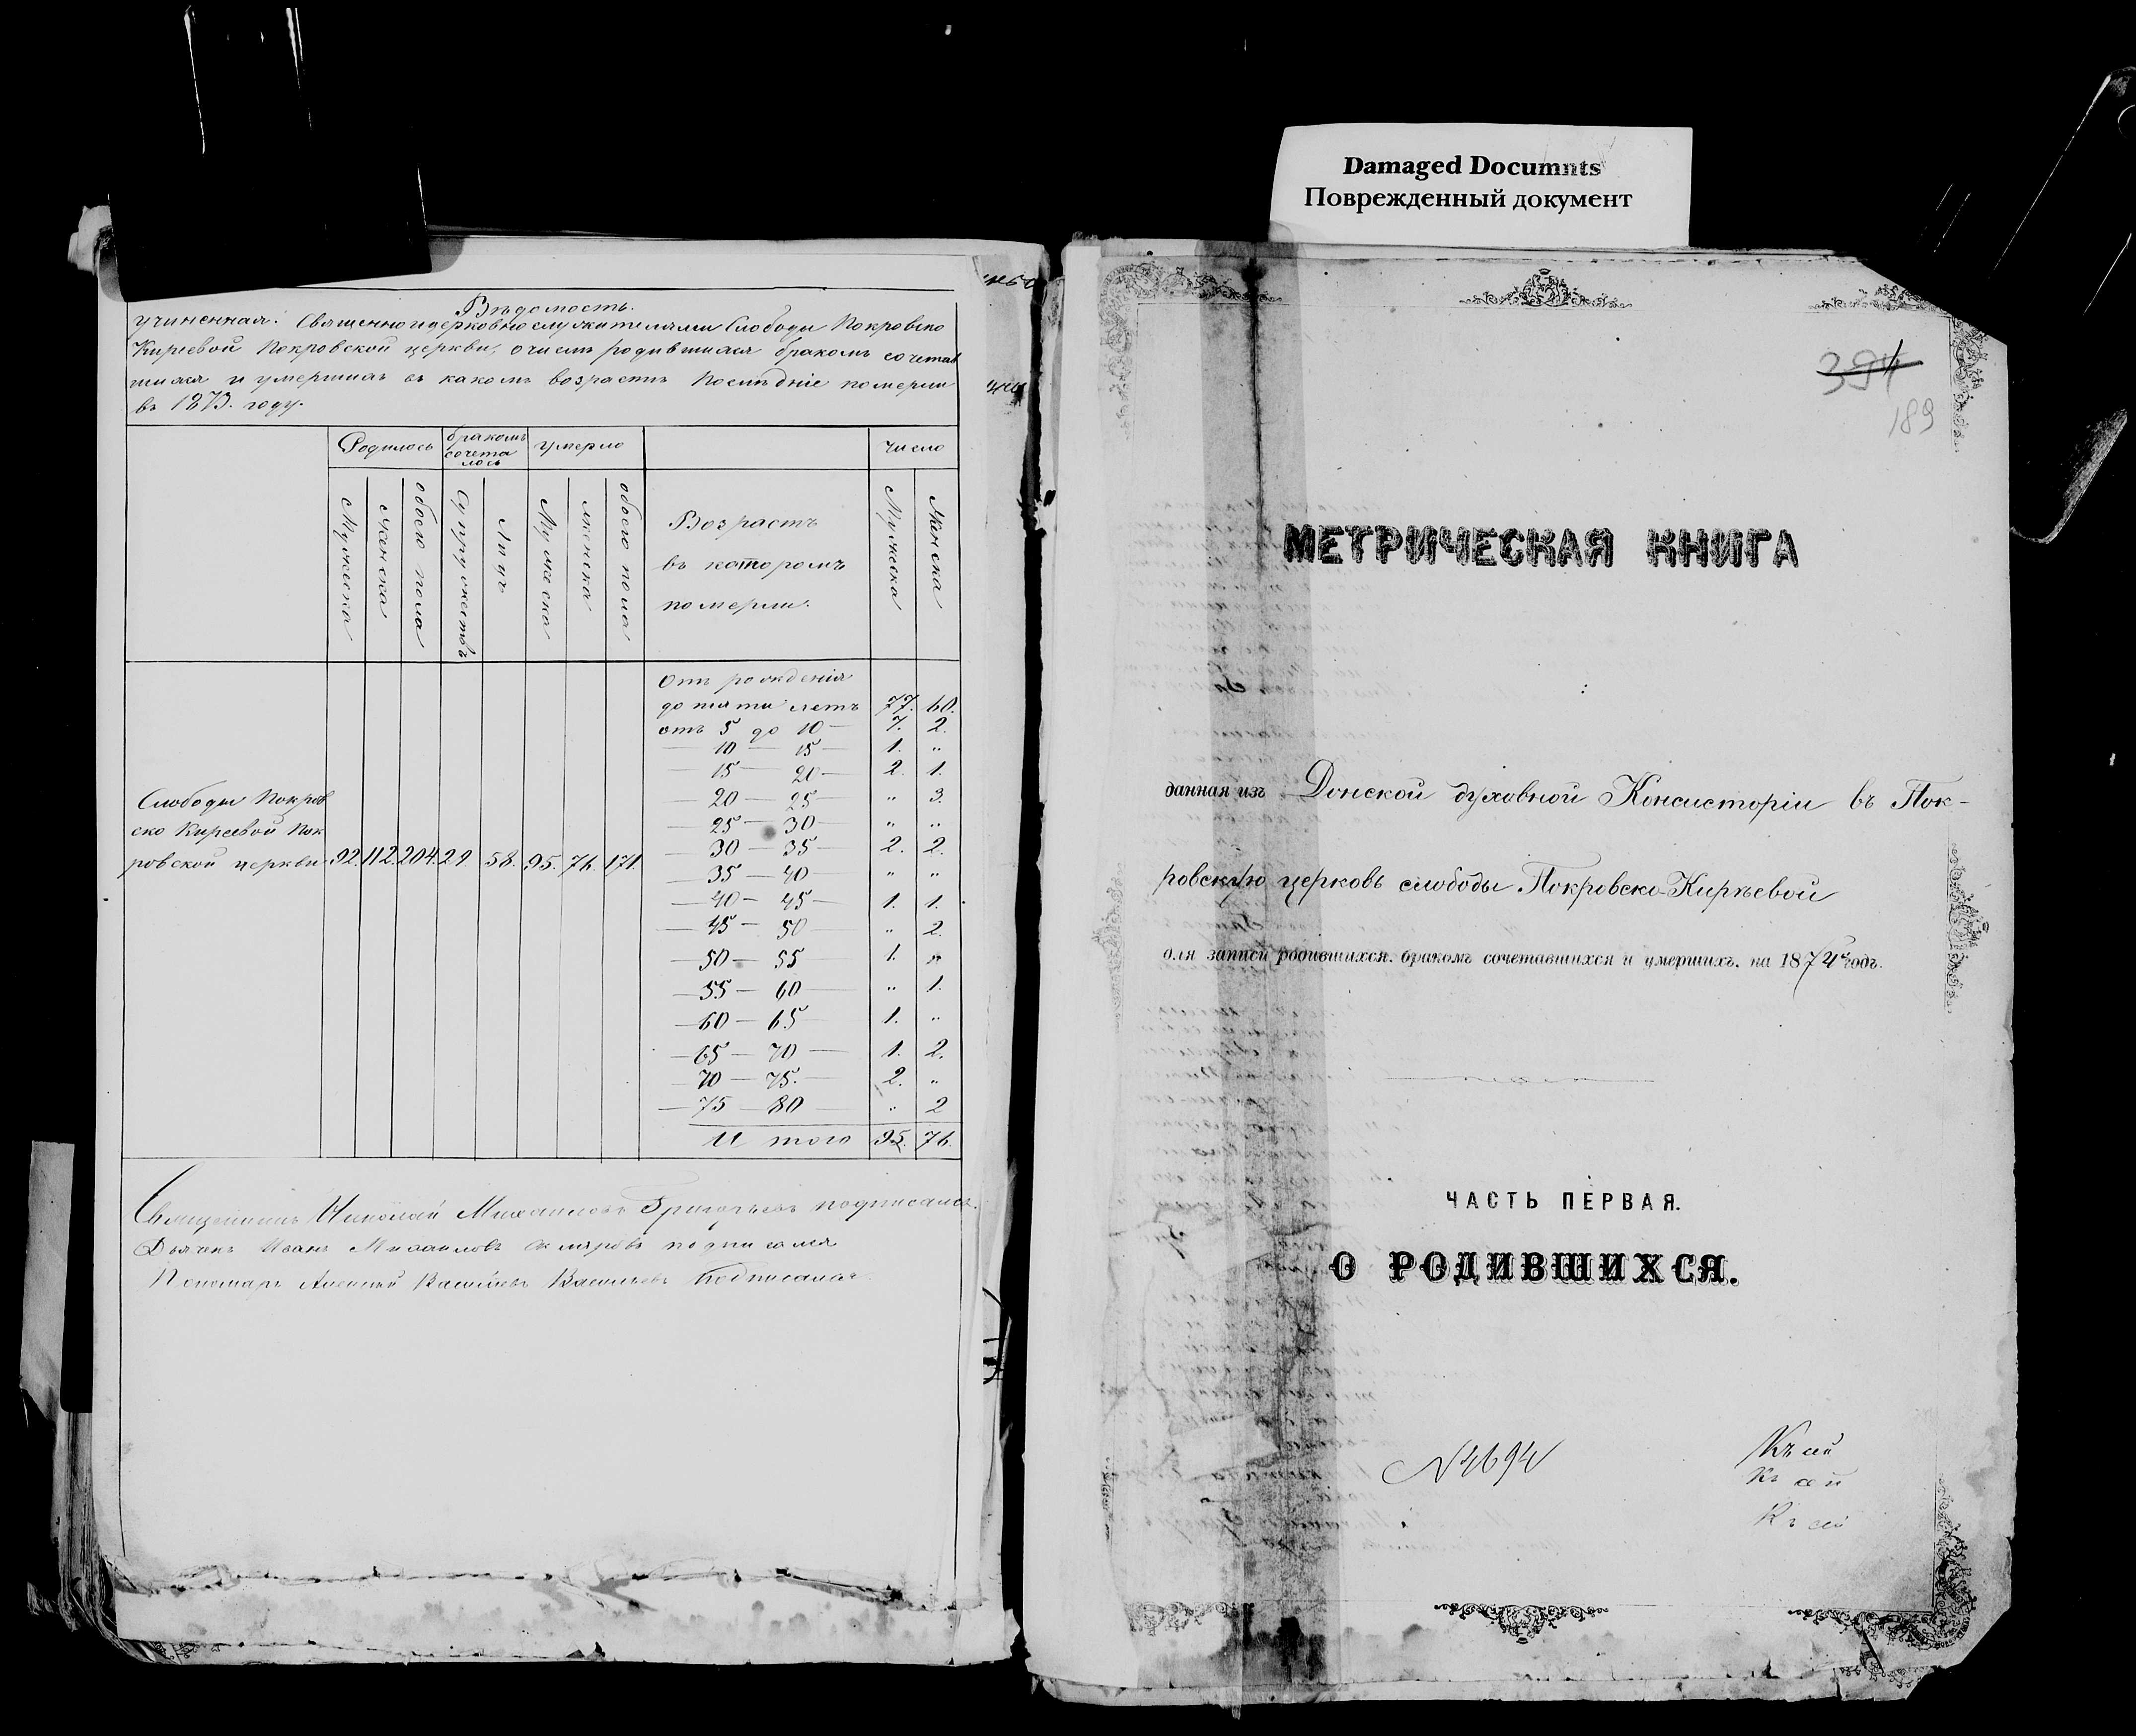 Damaged Documnts
Поврежденный документ
Вѣдомость.
учиненная. Священноицерковнослужителями Слободы Покровско
Киреевой Покровской церкви, о числѣ родившихся бракомъ сочетав
шихся и умершихъ въ какомъ возрастѣ Послѣдніе померли
въ 1873. году.
Родилось бракомъ сочета лось умерло число
Мужеска женска обоего пола Супружествъ Лицъ Мужеска женска обоего пола Возрастъ въ которомъ померли. Мужеска Женска
Отъ рожденія
до пяти летъ 77. 60.
отъ 5 до 10 — 7. 2.
— 10 — 15 — 1. "
— 15 — 20 — 2. 1.
— 20 — 25 — " 3.
— 25 — 30 — " "
— 30 — 35 — 2. 2.
— 35 — 40 — " "
— 40 — 45 — 1. 1.
— 45 — 50 — " 2.
— 50 — 55 — 1. "
— 55 — 60 — " 1.
— 60 — 65 — 1. "
— 65 — 70 — 1. 2.
— 70 — 75. — 2. "
— 75 — 80 — " 2
И того 95. 76.
Слободы Покров
ско Киреевой Пок
ровской церкви 92. 112. 204. 29. 58. 95. 76. 171.
Священникъ Николай Михаиловъ Григорьевъ подписался.
Дьячекъ Иванъ Михаиловъ подписался
Пономарь Алексѣй Васильевъ Васильевъ Подписался.
394
189
МЕТРИЧЕСКАЯ КНИГА
данная изъ Донской духовной Консисторіи въ Пок-
ровскую церковь слободы Покровско-Кирѣевой
для записи родившихся, бракомъ сочетавшихся и умершихъ, на 1874 годъ.
ЧАСТЬ ПЕРВАЯ.
О РОДИВШИХСЯ.
N 4694